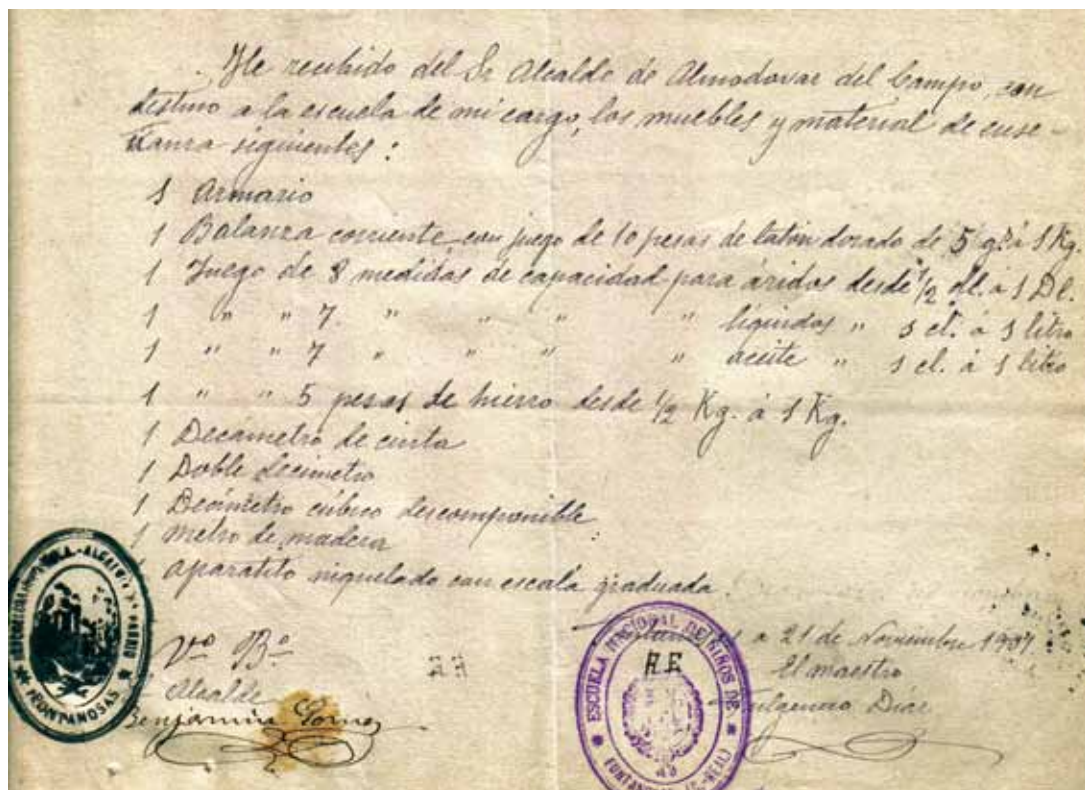 He recibido del Sr Alcalde de Almodovar del Campo, con
destino a la escuela de mi cargo, los muebles y material de ense-
ñanza siguientes:
1 Armario
1 Balanza corriente con juego de 10 pesas de latón dorado de 5 g. á 1 Kg.
1 Juego de 8 medidas de capacidad para áridos desde 1/2 dl. á 1 Dl.
1 " " 7 " " " " líquidos " 1 cl. á 1 litro
1 " " 7 " " " " aceite " 1 cl. á 1 litro
1 " " 5 pesas de hierro desde 1/2 Kg. á 1 Kg.
1 Decámetro de cinta
1 Doble decímetro
1 Decímetro cúbico descomponible
1 Metro de madera
1 Aparatito niquelado con escala graduada
a 21 de Noviembre
Vº Bº
El maestro
Alcalde
Fulgencio Díaz
Benjamín Gómez
ALCALDIA
FONTANOSAS
ESCUELA NACIONAL DE NIÑOS DE
FONTANOSAS